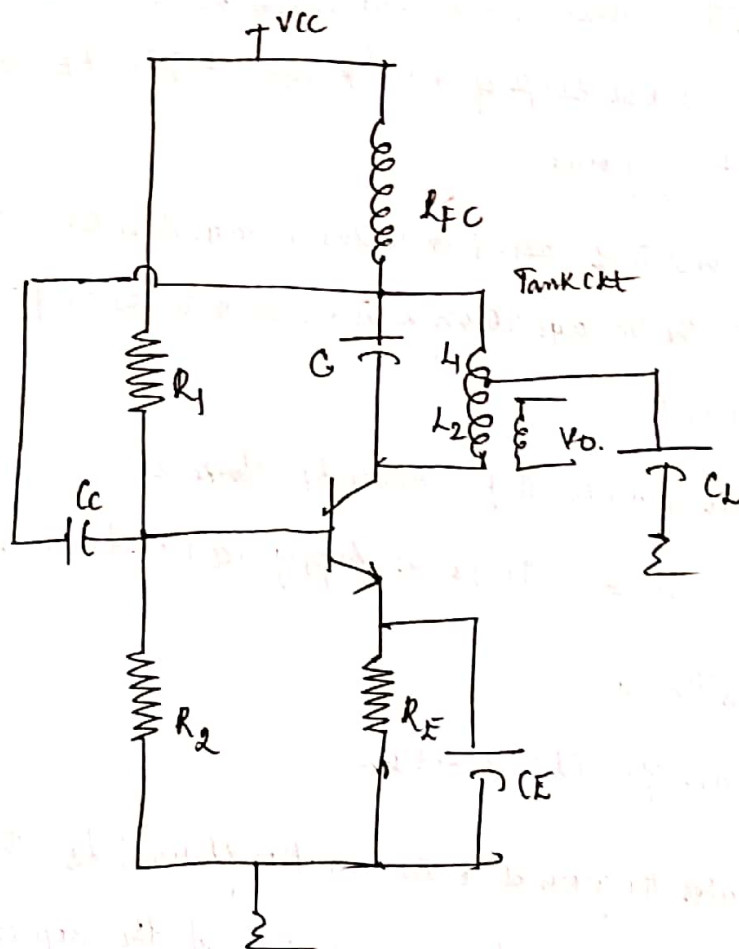 + VCC
RFC
Tank Ckt
C
L1
R1
L2
Vo.
CL
Cc
R2
RE
CE